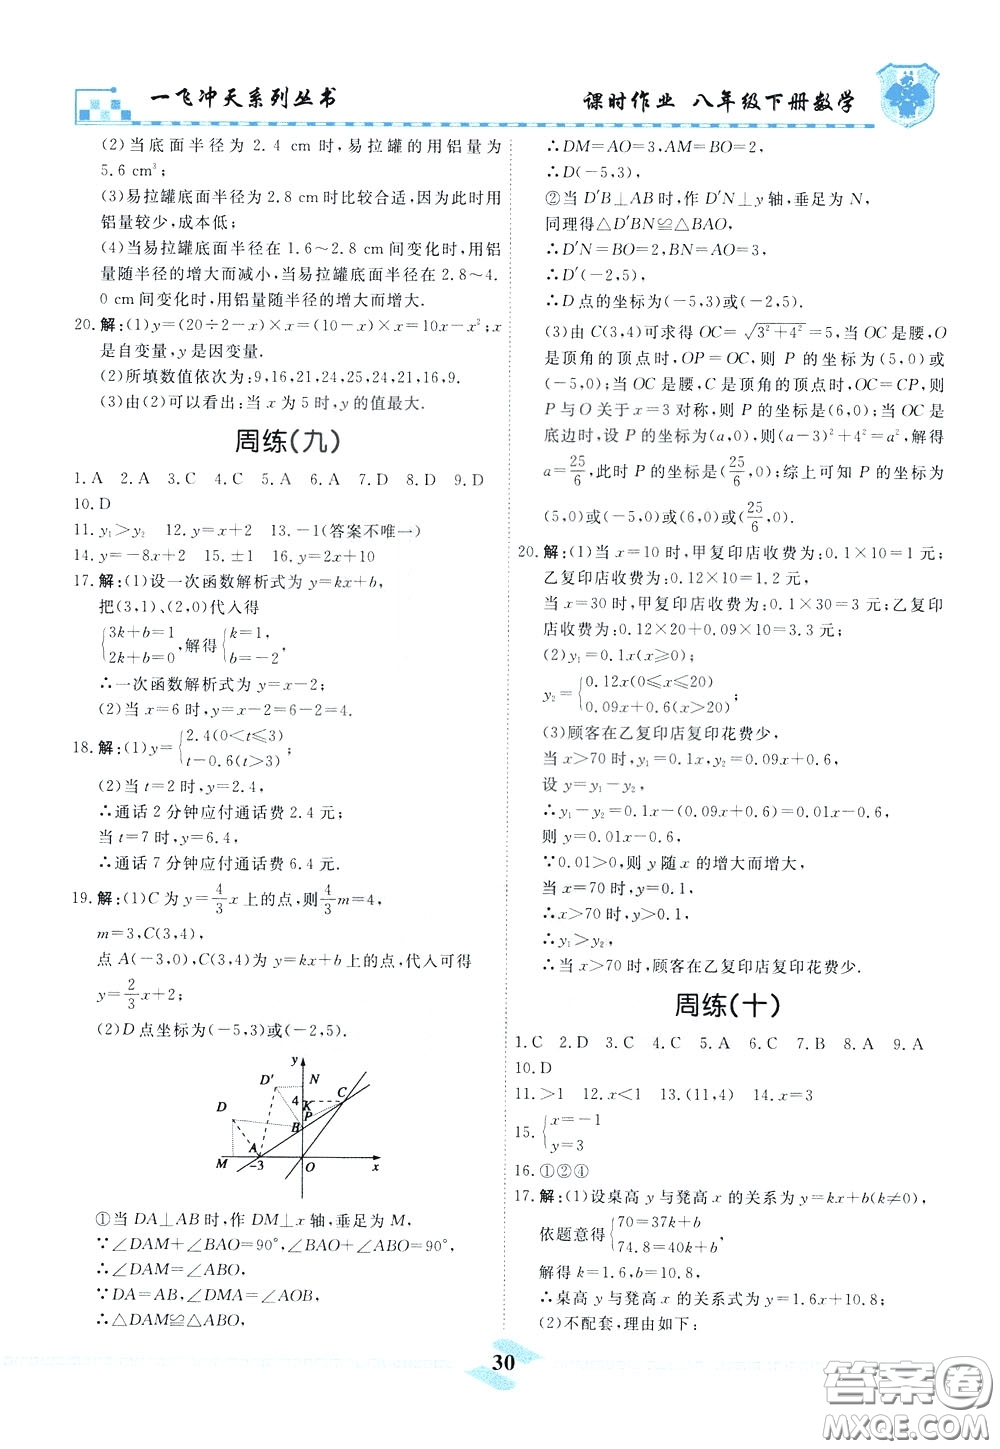 一飞冲天系列丛书
课时作业 八年级下册数学
(2)当底面半径为2.4 cm时,易拉罐的用铝量为
5.6 cm³;
(3)易拉罐底面半径为2.8 cm时比较合适,因为此时用
铝量较少,成本低;
(4)当易拉罐底面半径在1.6～2.8 cm间变化时,用铝
量随半径的增大而减小,当易拉罐底面半径在2.8～4.
0 cm间变化时,用铝量随半径的增大而增大.
20.解:(1)y=(20÷2-x)×x=(10-x)×x=10x-x²;x
是自变量,y是因变量.
(2)所填数值依次为:9,16,21,24,25,24,21,16,9.
(3)由(2)可以看出:当x为5时,y的值最大.
周练(九)
1.A 2.A 3.C 4.C 5.A 6.A 7.D 8.D 9.D
10.D
11.y₁>y₂ 12.y=x+2 13.-1(答案不唯一)
14.y=-8x+2 15.±1 16.y=2x+10
17.解:(1)设一次函数解析式为y=kx+b,
把(3,1)、(2,0)代入得
{3k+b=1 2k+b=0,解得{k=1, b=-2,
∴一次函数解析式为y=x-2;
(2)当x=6时,y=x-2=6-2=4.
18.解:(1)y={2.4(0<t≤3) t-0.6(t>3);
(2)当t=2时,y=2.4,
∴通话2分钟应付通话费2.4元;
当t=7时,y=6.4,
∴通话7分钟应付通话费6.4元.
19.解:(1)C为y=4/3x上的点,则4/3m=4,
m=3,C(3,4),
点A(-3,0),C(3,4)为y=kx+b上的点,代入可得
y=2/3x+2;
(2)D点坐标为(-5,3)或(-2,5).
y
D′ N
C
4 K
D P
B
A
M -3 O x
①当DA⊥AB时,作DM⊥x轴,垂足为M,
∵∠DAM+∠BAO=90°,∠BAO+∠ABO=90°,
∴∠DAM=∠ABO,
∵DA=AB,∠DMA=∠AOB,
∴△DAM≌△ABO,
∴DM=AO=3,AM=BO=2,
∴D(-5,3),
②当D′B⊥AB时,作D′N⊥y轴,垂足为N,
同理得△D′BN≌△BAO,
∴D′N=BO=2,BN=AO=3,
∴D′(-2,5),
∴D点的坐标为(-5,3)或(-2,5).
(3)由C(3,4)可求得OC=√3²+4²=5,当OC是腰,O
是顶角的顶点时,OP=OC,则P的坐标为(5,0)或
(-5,0);当OC是腰,C是顶角的顶点时,OC=CP,则
P与O关于x=3对称,则P的坐标是(6,0);当OC是
底边时,设P的坐标为(a,0),则(a-3)²+4²=a²,解得
a=25/6,此时P的坐标是(25/6,0);综上可知P的坐标为
(5,0)或(-5,0)或(6,0)或(25/6,0).
20.解:(1)当x=10时,甲复印店收费为:0.1×10=1元;
乙复印店收费为:0.12×10=1.2元;
当x=30时,甲复印店收费为:0.1×30=3元;乙复印
店收费为:0.12×20+0.09×10=3.3元;
(2)y₁=0.1x(x≥0);
y₂={0.12x(0≤x≤20) 0.09x+0.6(x>20);
(3)顾客在乙复印店复印花费少.
当x>70时,y₁=0.1x,y₂=0.09x+0.6,
设y=y₁-y₂,
∴y₁-y₂=0.1x-(0.09x+0.6)=0.01x-0.6,
则y=0.01x-0.6,
∵0.01>0,则y随x的增大而增大,
当x=70时,y=0.1,
∴x>70时,y>0.1,
∴y₁>y₂,
∴当x>70时,顾客在乙复印店复印花费少.
周练(十)
1.C 2.D 3.C 4.C 5.A 6.C 7.B 8.A 9.A
10.D
11.>1 12.x<1 13.(11,4) 14.x=3
15.{x=-1 y=3
16.①②④
17.解:(1)设桌高y与凳高x的关系为y=kx+b(k≠0),
依题意得{70=37k+b 74.8=40k+b,
解得k=1.6,b=10.8,
∴桌高y与凳高x的关系式为y=1.6x+10.8;
(2)不配套,理由如下:
30
答案卷
MXQE.COM